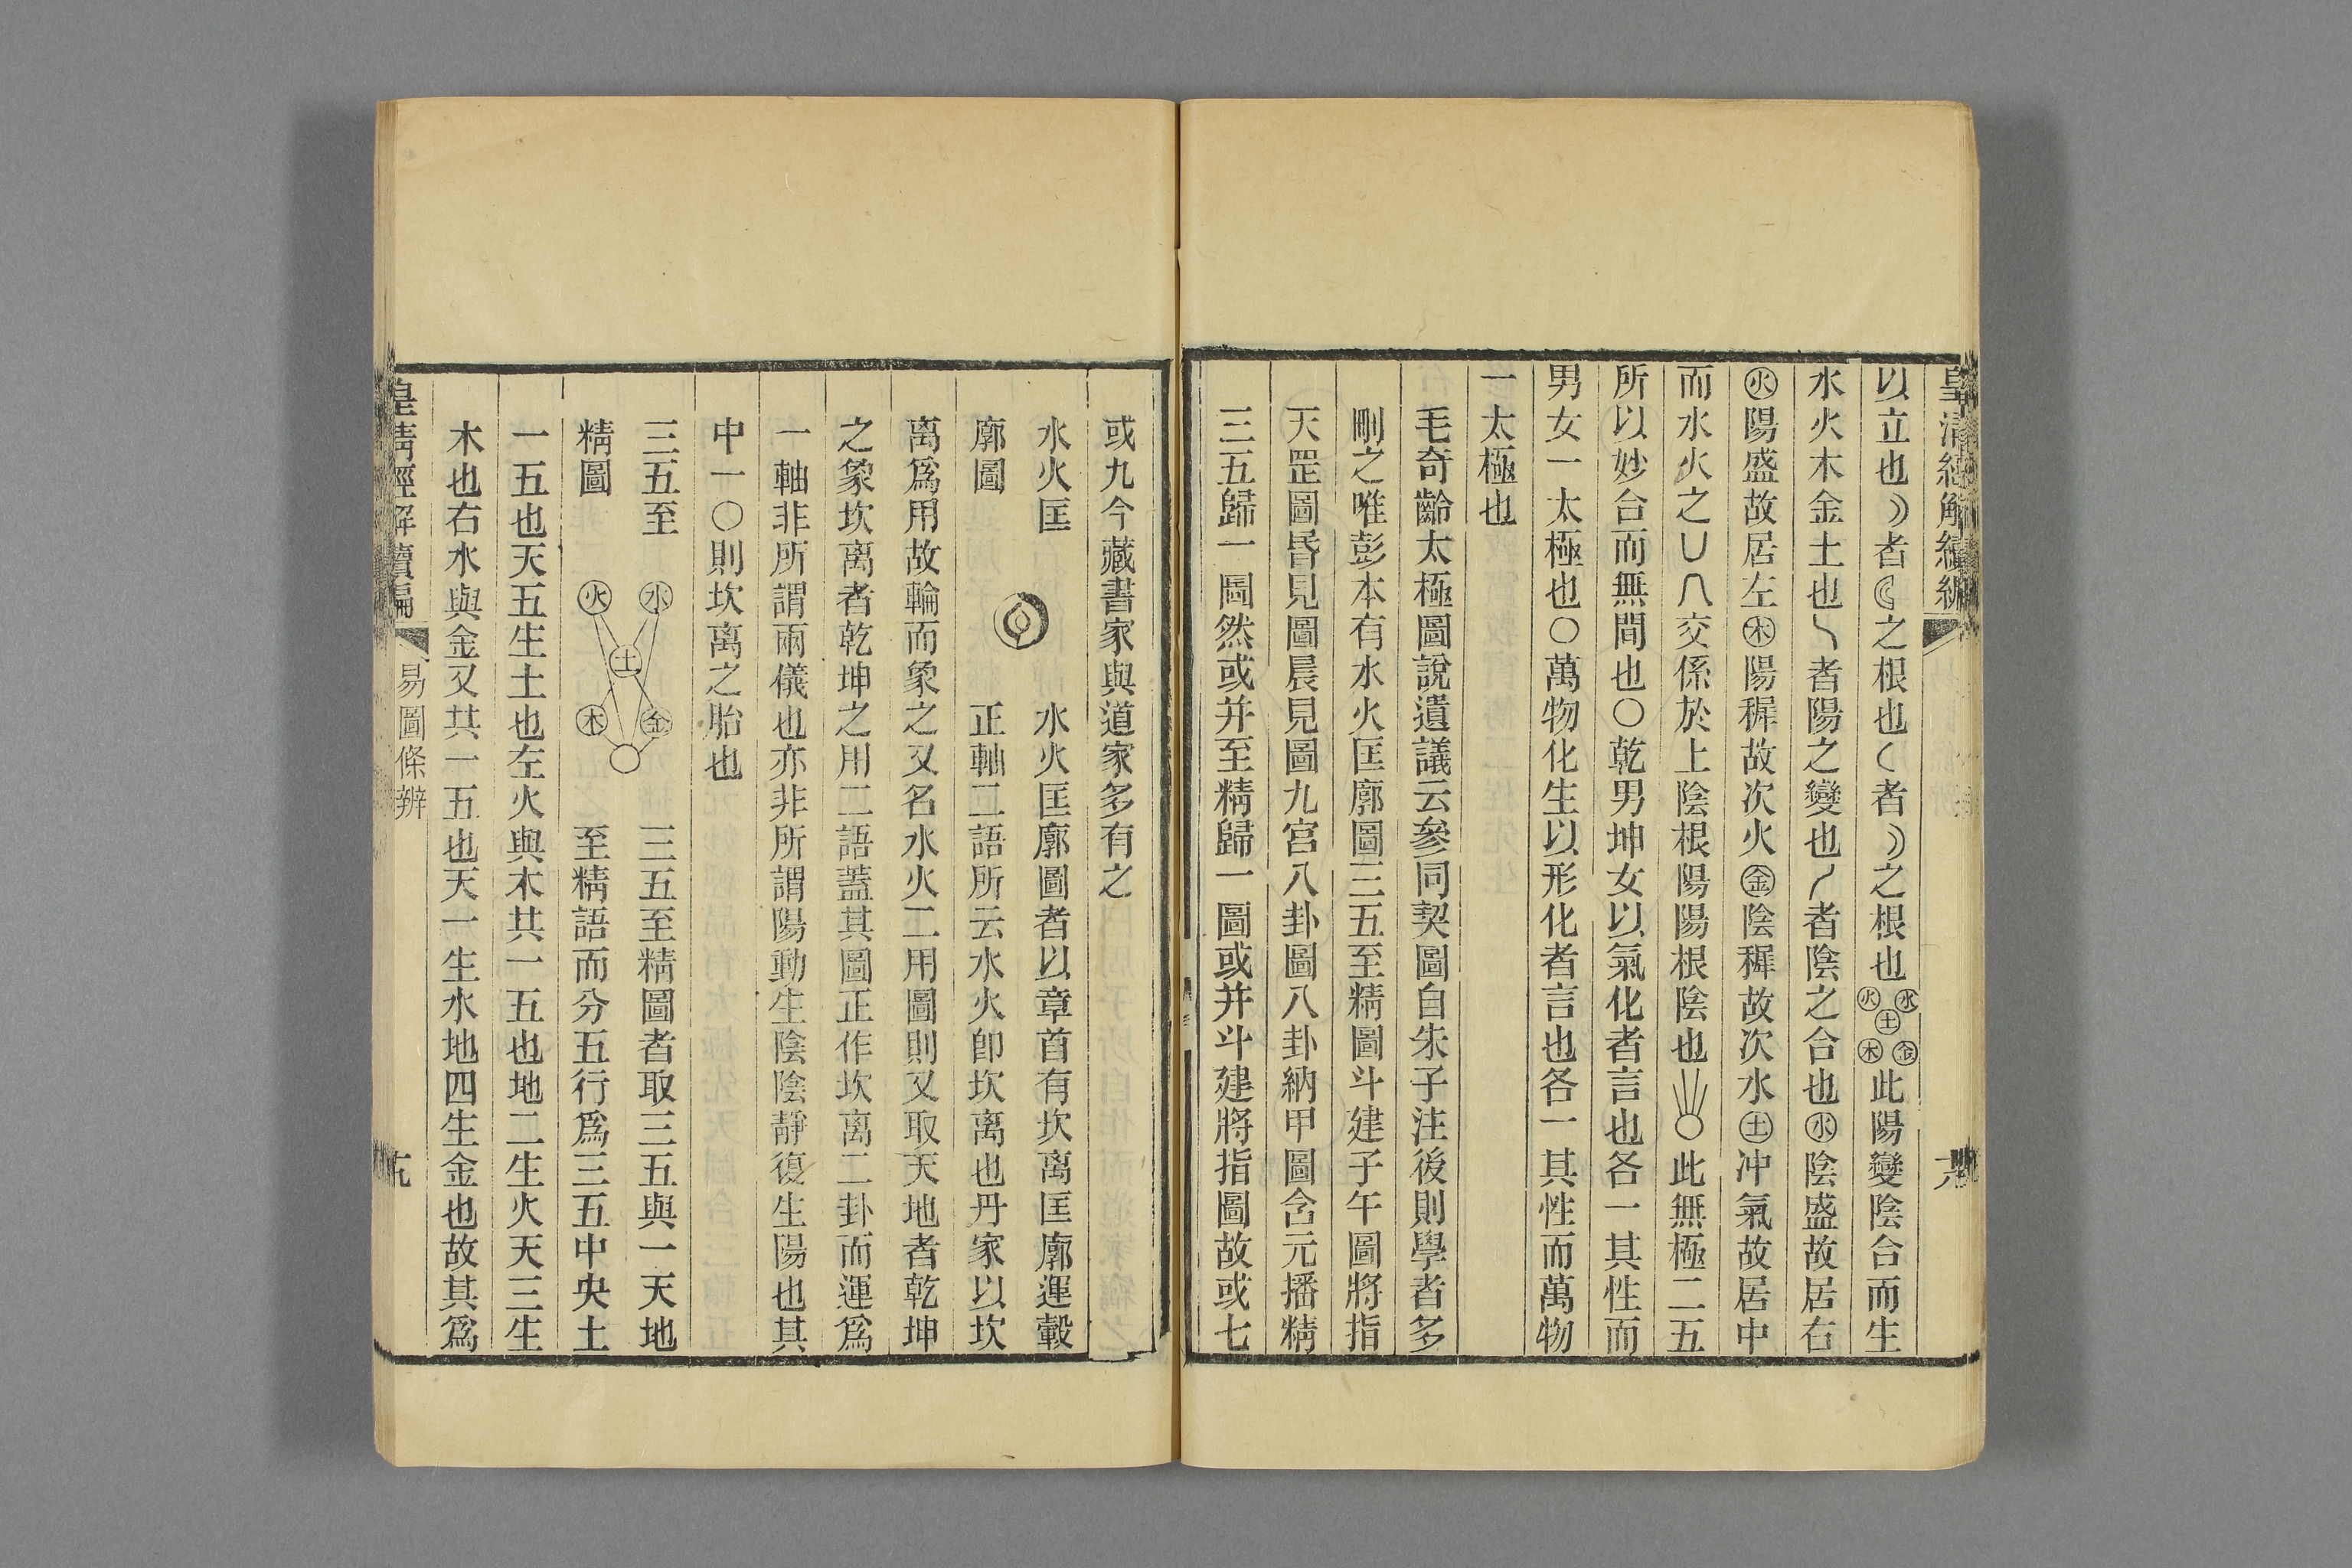 皇清經解續編
六
以立也☽者☾之根也☾者☽之根也火水土木金此陽變陰合而生
水火木金土也㇏者陽之變也㇒者陰之合也水陰盛故居右
火陽盛故居左木陽穉故次火金陰穉故次水土冲氣故居中
而水火之∪∩交係於上陰根陽陽根陰也○此無極二五
所以妙合而無間也○乾男坤女以氣化者言也各一其性而
男女一太極也○萬物化生以形化者言也各一其性而萬物
一太極也
毛奇齡太極圖說遺議云參同契圖自朱子注後則學者多
刪之唯彭本有水火匡廓圖三五至精圖斗建子午圖將指
天罡圖昏見圖晨見圖九宮八卦圖八卦納甲圖含元播精
三五歸一圖然或并至精歸一圖或并斗建將指圖故或七
或九今藏書家與道家多有之
水火匡
廓圖
水火匡廓圖者以章首有坎离匡廓運轂
正軸二語所云水火卽坎离也丹家以坎
离爲用故輪而象之又名水火二用圖則又取天地者乾坤
之象坎离者乾坤之用二語蓋其圖正作坎离二卦而運爲
一軸非所謂兩儀也亦非所謂陽動生陰陰靜復生陽也其
中一○則坎离之胎也
三五至
精圖
水
火
土
金
木
三五至精圖者取三五與一天地
至精語而分五行爲三五中央土
一五也天五生土也左火與木共一五也地二生火天三生
木也右水與金又共一五也天一生水地四生金也故其爲
皇清經解續編
易圖條辨